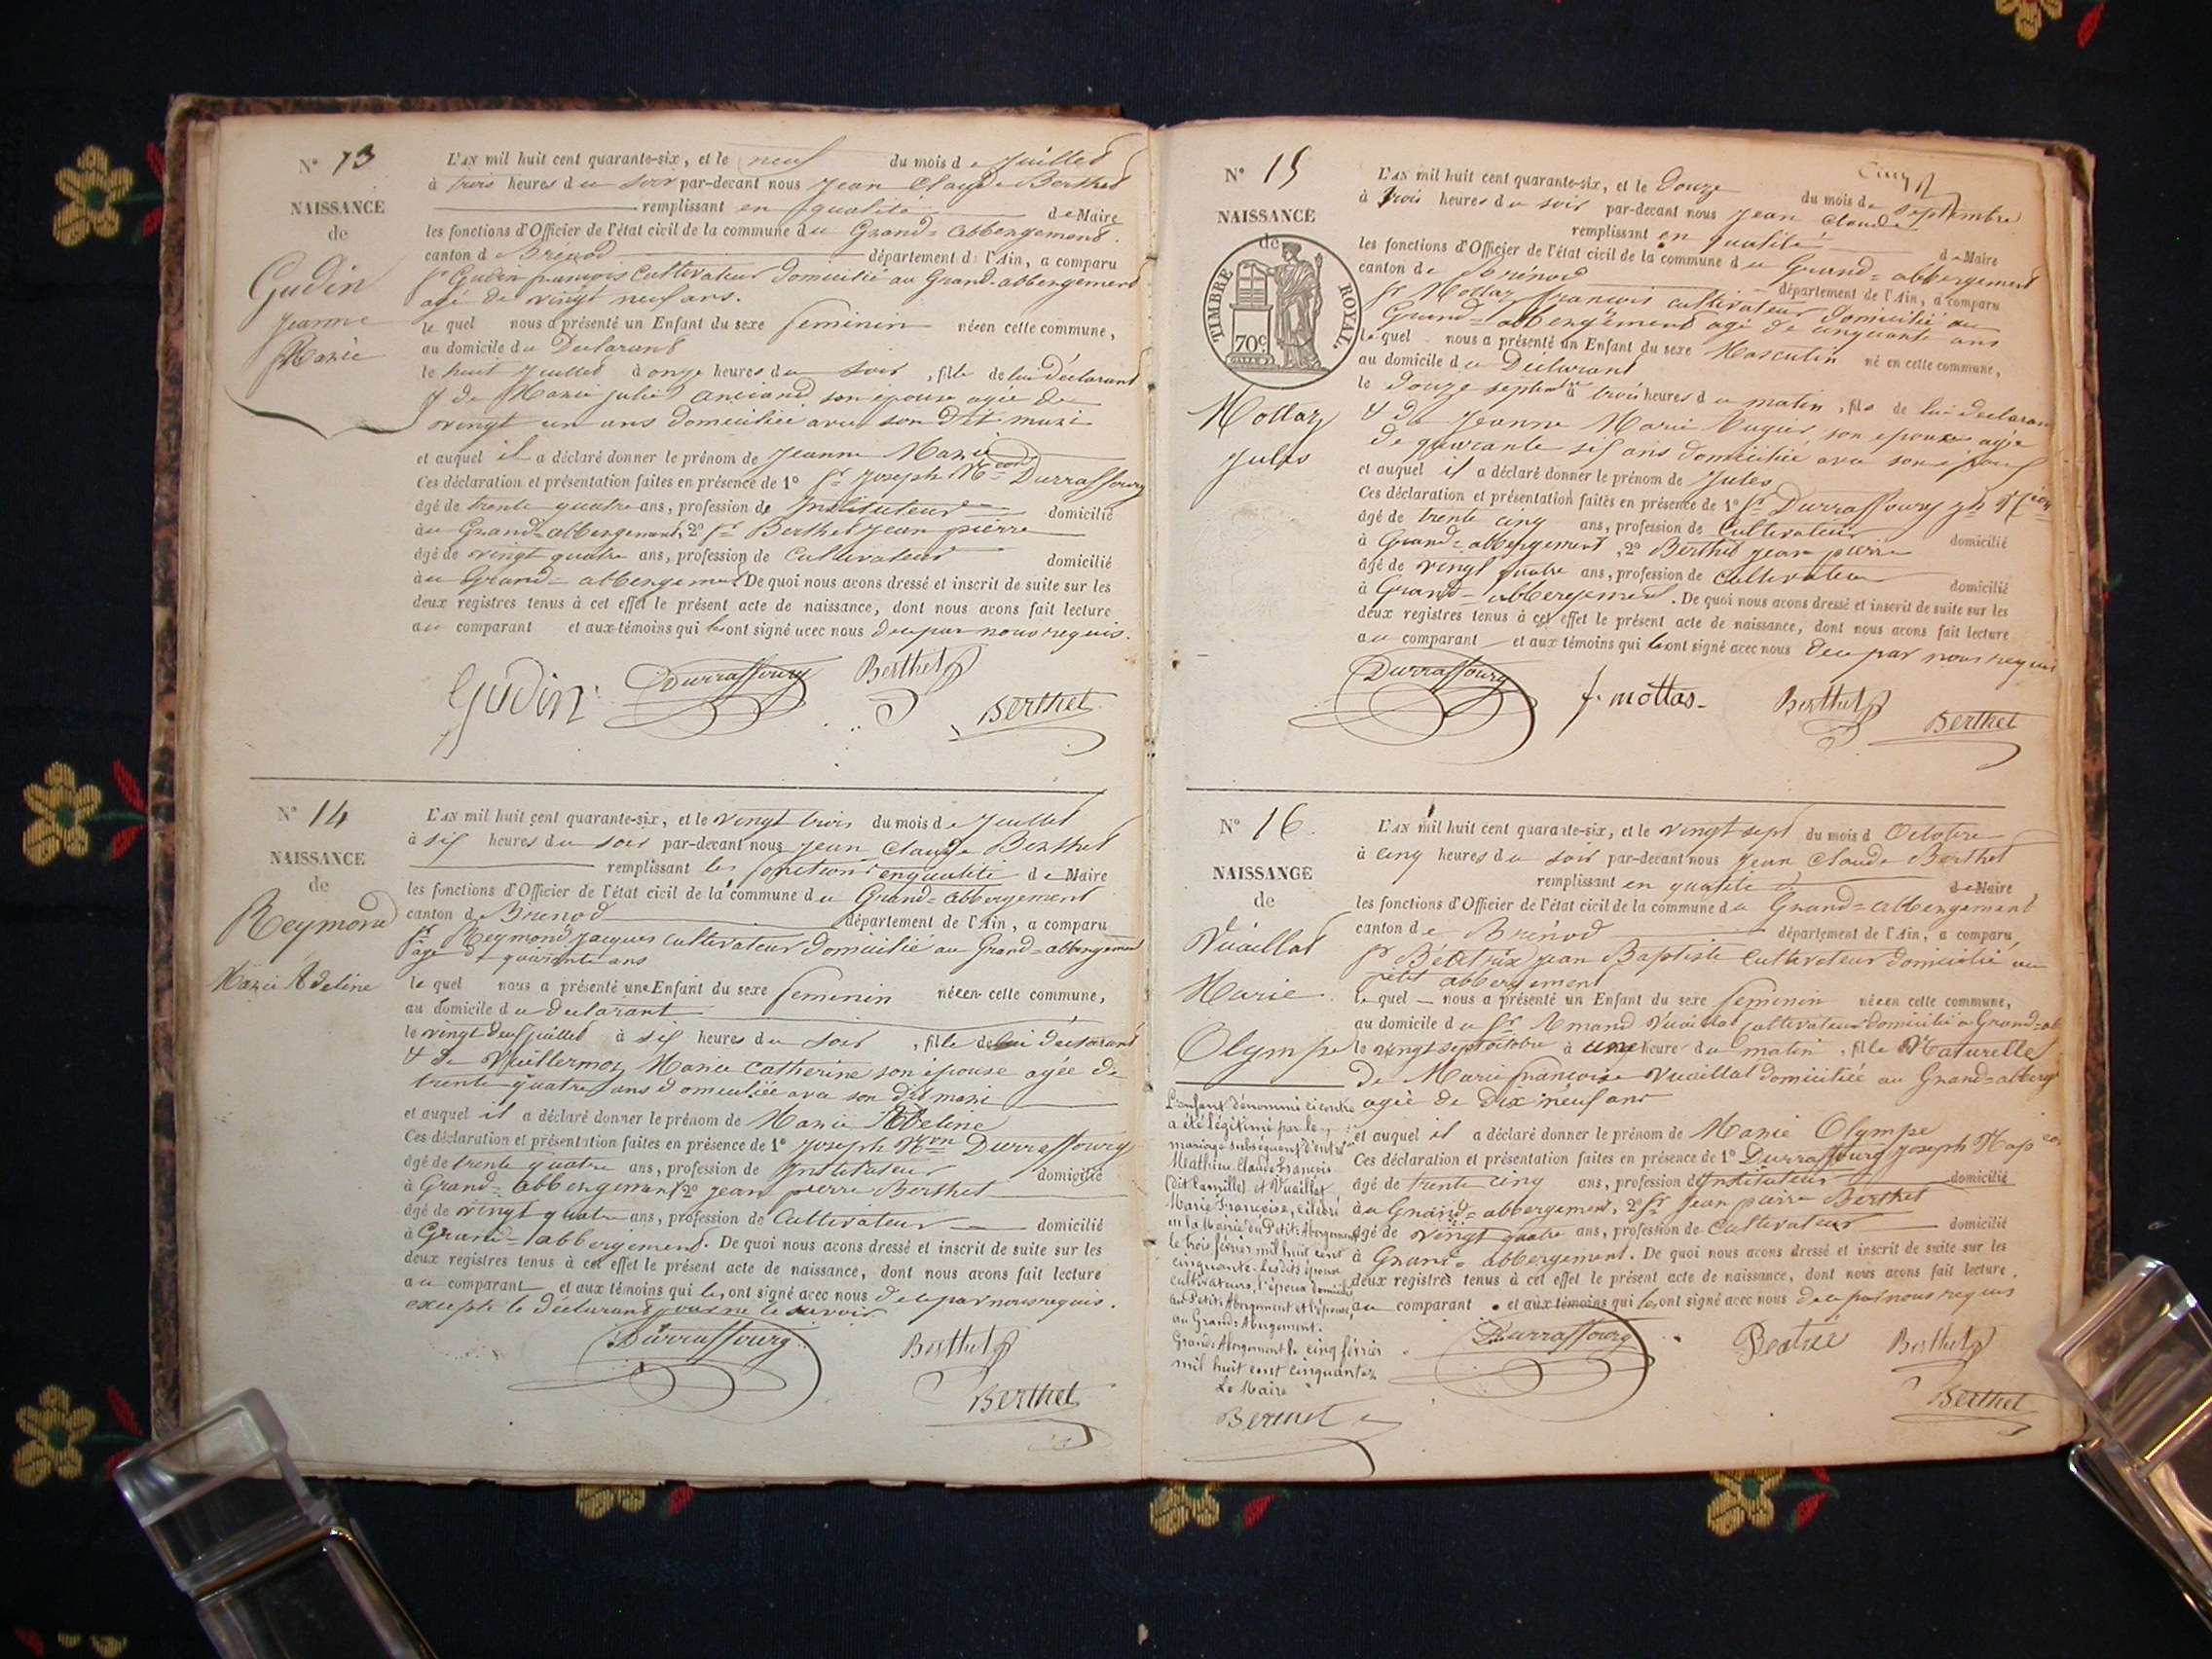 N° 13
NAISSANCE
de
Gudin
Jeanne
Marie
L'AN mil huit cent quarante-six, et le neuf du mois de Juillet
à trois heures du soir par-devant nous Jean Claude Berthet
remplissant en qualité de Maire
les fonctions d'Officier de l'état civil de la commune du Grand=abbergement
canton de Brénod département de l'Ain, a comparu
Sr Gudin françois Cultivateur domicilié au Grand-abbergement
agé de vingt neuf ans.
le quel nous a présenté un Enfant du sexe feminin née en cette commune,
au domicile du Declarant
le huit Juillet à onze heures du soir, fille de lui déclarant
& de Marie julie son épouse agée de
vingt un ans domiciliée avec son dit mari
et auquel il a déclaré donner le prénom de Jeanne Marie
Ces déclaration et présentation faites en présence de 1° Sr Joseph Mcion Durraffourg
âgé de trente quatre ans, profession de Instituteur domicilié
au Grand=abbergement, 2° Sr Berthet Jean pierre
âgé de vingt quatre ans, profession de Cultivateur domicilié
au Grand=abbergement De quoi nous avons dressé et inscrit de suite sur les
deux registres tenus à cet effet le présent acte de naissance, dont nous avons fait lecture
au comparant et aux témoins qui ont signé avec nous de ce par nous requis.
Gudin Durraffourg Berthet
Berthet
N° 14
NAISSANCE
de
Reymond
Marie Adeline
L'AN mil huit cent quarante-six, et le vingt trois du mois de Juillet
à six heures du soir par-devant nous Jean Claude Berthet
remplissant les fonctions en qualité de Maire
les fonctions d'Officier de l'état civil de la commune du Grand=abbergement
canton de Brenod département de l'Ain, a comparu
Sr Reymond Jacques cultivateur domicilié au Grand=abbergement
agé de quarante ans
le quel nous a présenté une Enfant du sexe feminin née en cette commune,
au domicile du declarant
le vingt deux juillet à six heures du soir, fille de lui déclarant
& de Vuillermoz Marie Catherine son épouse agée de
trente quatre ans domiciliée avec son dit mari
et auquel il a déclaré donner le prénom de Marie Adeline
Ces déclaration et présentation faites en présence de 1° Joseph Durraffourg
âgé de trente quatre ans, profession de Instituteur domicilié
à Grand=abbergement 2° Jean pierre Berthet
âgé de vingt quatre ans, profession de Cultivateur domicilié
à Grand=abbergement. De quoi nous avons dressé et inscrit de suite sur les
deux registres tenus à cet effet le présent acte de naissance, dont nous avons fait lecture
au comparant et aux témoins qui ont signé avec nous de ce par nous requis.
excepté le déclarant pour ne le savoir
Durraffourg Berthet
Berthet
Cinq
N° 15
NAISSANCE
de
TIMBRE ROYAL.
70c.
Mottaz
Jules
L'AN mil huit cent quarante-six, et le Douze du mois de septembre
à trois heures du soir par-devant nous Jean Claude
remplissant en qualité de Maire
les fonctions d'Officier de l'état civil de la commune du Grand=abbergement
canton de Brénod département de l'Ain, a comparu
Sr Mottaz françois cultivateur domicilié au
Grand=abbergement agé de cinquante ans
le quel nous a présenté un Enfant du sexe Masculin né en cette commune,
au domicile du Déclarant
le douze septembre à trois heures du matin, fils de lui declarant
& de Jeanne Marie son epouse agée
de quarante six ans domiciliée avec son époux
et auquel il a déclaré donner le prénom de Jules
Ces déclaration et présentation faites en présence de 1° Sr Durraffourg
âgé de trente cinq ans, profession de Cultivateur domicilié
à Grand=abbergement, 2° Berthet Jean pierre
âgé de vingt quatre ans, profession de Cultivateur domicilié
à Grand=abbergement. De quoi nous avons dressé et inscrit de suite sur les
deux registres tenus à cet effet le présent acte de naissance, dont nous avons fait lecture
au comparant et aux témoins qui ont signé avec nous de ce par nous requis
Durraffourg f. mottas Berthet
Berthet
N° 16
NAISSANCE
de
Vuaillat
Marie
Olympe
L'AN mil huit cent quarante-six, et le vingt sept du mois d Octobre
à cinq heures du soir par-devant nous Jean Claude Berthet
remplissant en qualité de Maire
les fonctions d'Officier de l'état civil de la commune du Grand=abbergement
canton de Brénod département de l'Ain, a comparu
Sr Béatrix Jean Baptiste Cultivateur domicilié au
petit abbergement
le quel nous a présenté un Enfant du sexe feminin née en cette commune,
au domicile du Sr Amand Vuaillat cultivateur domicilié à Grand=ab
le vingt sept octobre à une heure du matin, fille Naturelle
de Marie françoise Vuaillat domiciliée au Grand=abberg
agée de dix neuf ans
et auquel il a déclaré donner le prénom de Marie Olympe
Ces déclaration et présentation faites en présence de 1° Durraffourg Joseph
âgé de trente cinq ans, profession d'Instituteur domicilié
au Grand=abbergement, 2° Sr Jean pierre Berthet
âgé de vingt quatre ans, profession de Cultivateur domicilié
à Grand=abbergement. De quoi nous avons dressé et inscrit de suite sur les
deux registres tenus à cet effet le présent acte de naissance, dont nous avons fait lecture
au comparant et aux témoins qui ont signé avec nous de ce par nous requis
Durraffourg Beatrix Berthet
Berthet
L'enfant dénommé ci contre
a été légitimé par le
mariage subséquent d'entre
Mathieu Claude François
(dit Camille) et Vuaillat
Marie Françoise, célébré
en la Mairie du Petit=Abergement
le trois février mil huit cent
cinquante. Lesdits époux
cultivateurs, l'époux domicilié
au Petit=Abergement et l'épouse
au Grand=Abergement.
Grand=Abergement le cinq février
mil huit cent cinquante.
Le Maire
Berthet